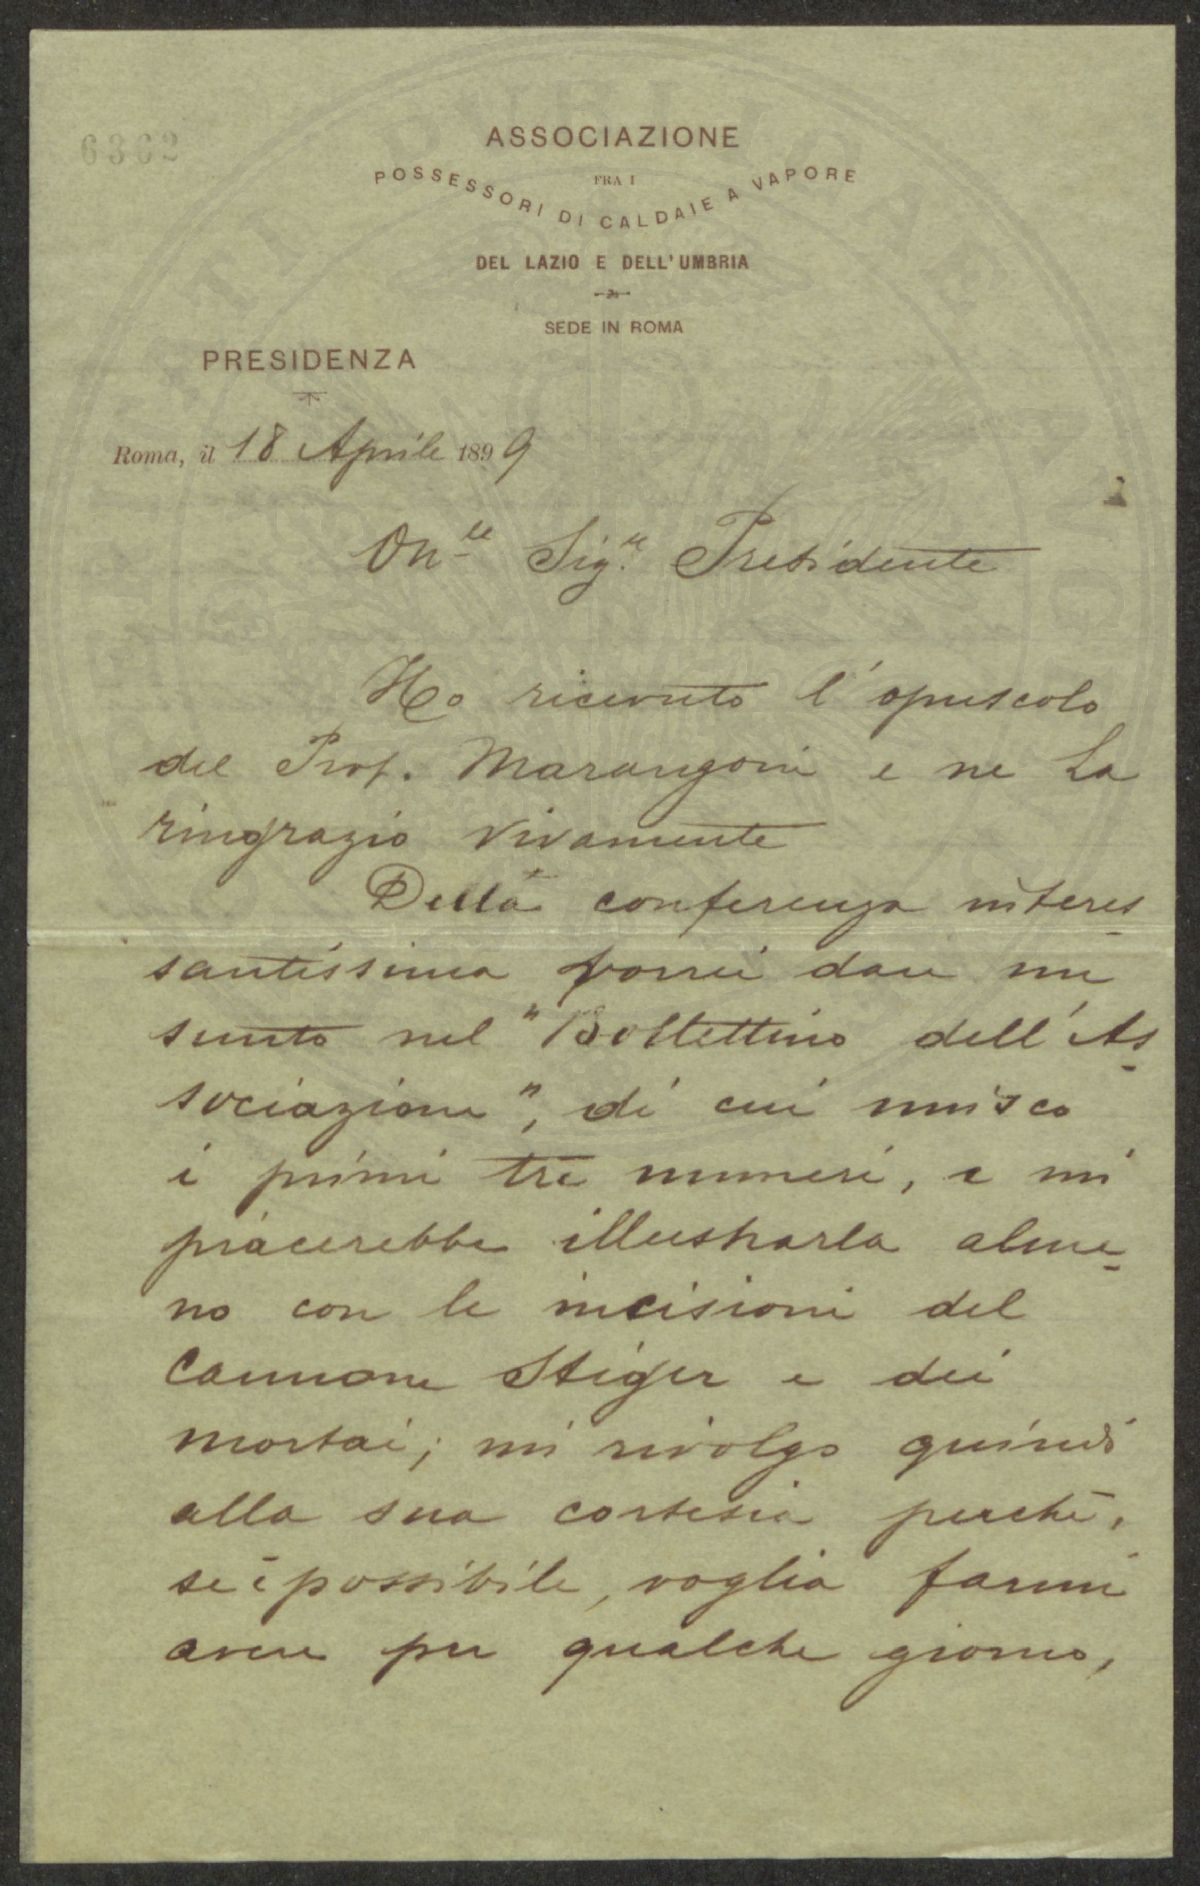 6362
ASSOCIAZIONE
FRA I
POSSESSORI DI CALDAIE A VAPORE
DEL LAZIO E DELL'UMBRIA
SEDE IN ROMA
PRESIDENZA
Roma, il 18 Aprile 1899
On.le Sig.re Presidente
Ho ricevuto l'opuscolo
del Prof. Marangoni e ne La
ringrazio vivamente
Della conferenza interes
santissima vorrei dare un
sunto nel "Bollettino dell'As
sociazione", di cui unisco
i primi tre numeri, e mi
piacerebbe illustrarla alme
no con le incisioni del
Cannone Stiger e dei
mortai; mi rivolgo quindi
alla sua cortesia perchè,
se è possibile, voglia farmi
avere per qualche giorno,